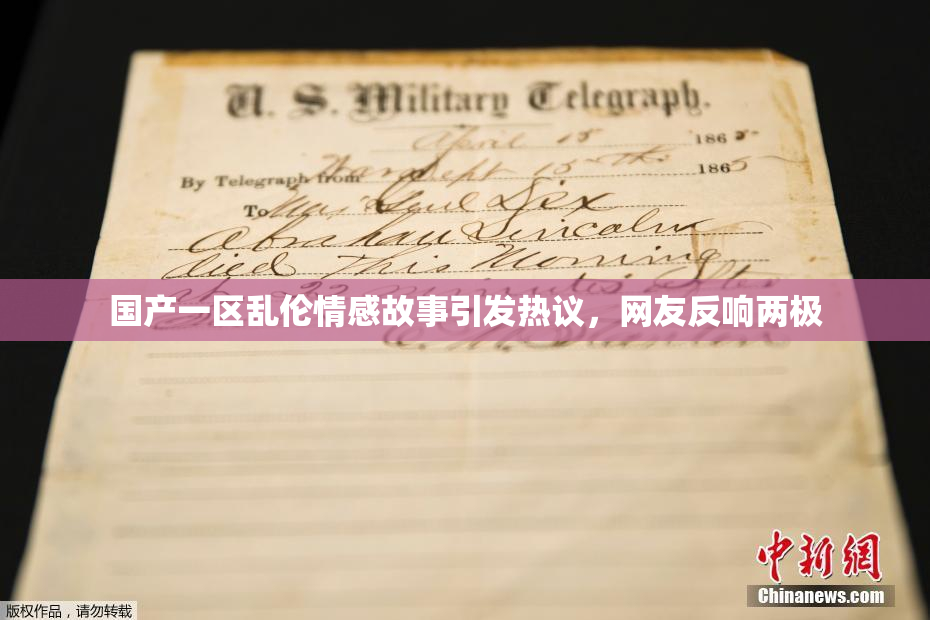 U. S. Military Telegraph.
April 15 1865
By Telegraph from War Dept 15th 1865
To Maj Genl Dix
Abraham Lincoln
died This Morning
22 minutes after
国产一区乱伦情感故事引发热议，网友反响两极
E. M. Stanton
中新网
Chinanews.com
版权作品，请勿转载